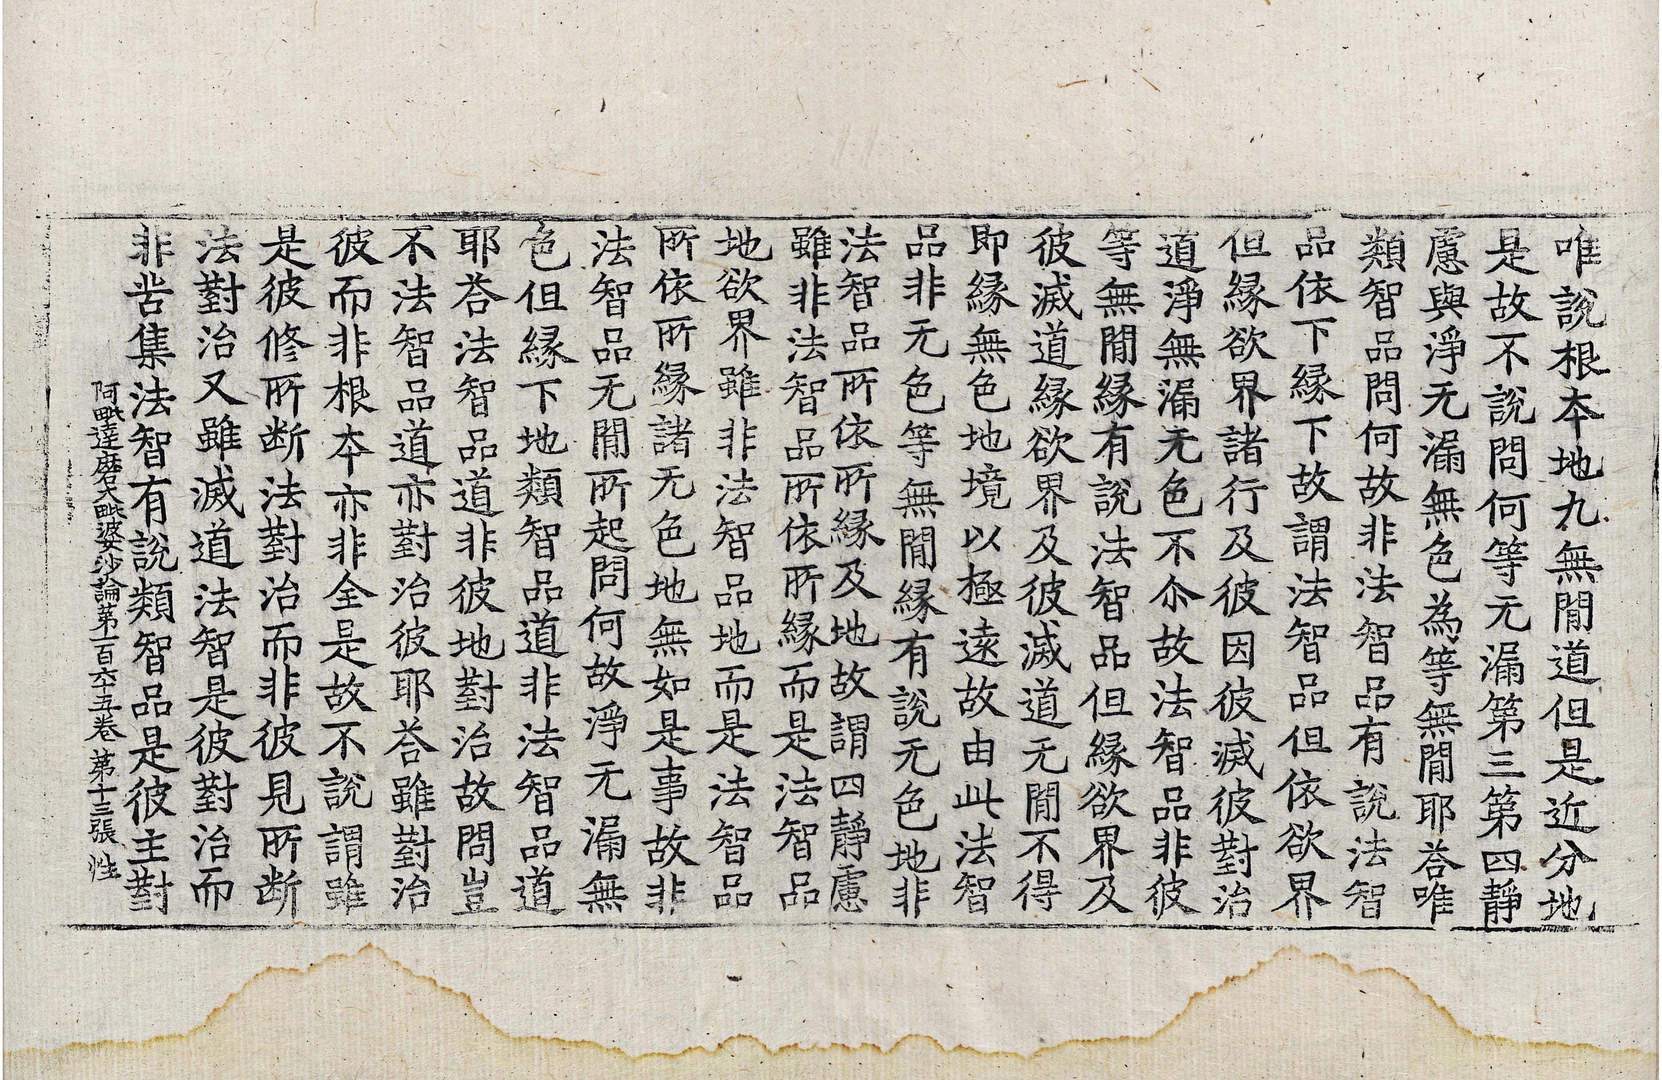 唯說根本地九無閒道但是近分地
是故不說問何等无漏第三第四靜
慮與淨无漏無色為等無閒耶荅唯
類智品問何故非法智品有說法智
品依下緣下故謂法智品但依欲界
但緣欲界諸行及彼因彼滅彼對治
道淨無漏无色不尒故法智品非彼
等無閒緣有說法智品但緣欲界及
彼滅道緣欲界及彼滅道无閒不得
即緣無色地境以極遠故由此法智
品非无色等無閒緣有說无色地非
法智品所依所緣及地故謂四靜慮
雖非法智品所依所緣而是法智品
地欲界雖非法智品地而是法智品
所依所緣諸无色地無如是事故非
法智品无閒所起問何故淨无漏無
色但緣下地類智品道非法智品道
耶荅法智品道非彼地對治故問豈
不法智品道亦對治彼耶荅雖對治
彼而非根本亦非全是故不說謂雖
是彼修所斷法對治而非彼見所斷
法對治又雖滅道法智是彼對治而
非苦集法智有說類智品是彼主對
阿毗達磨大毗婆沙論第一百六十五卷 第十三張 性